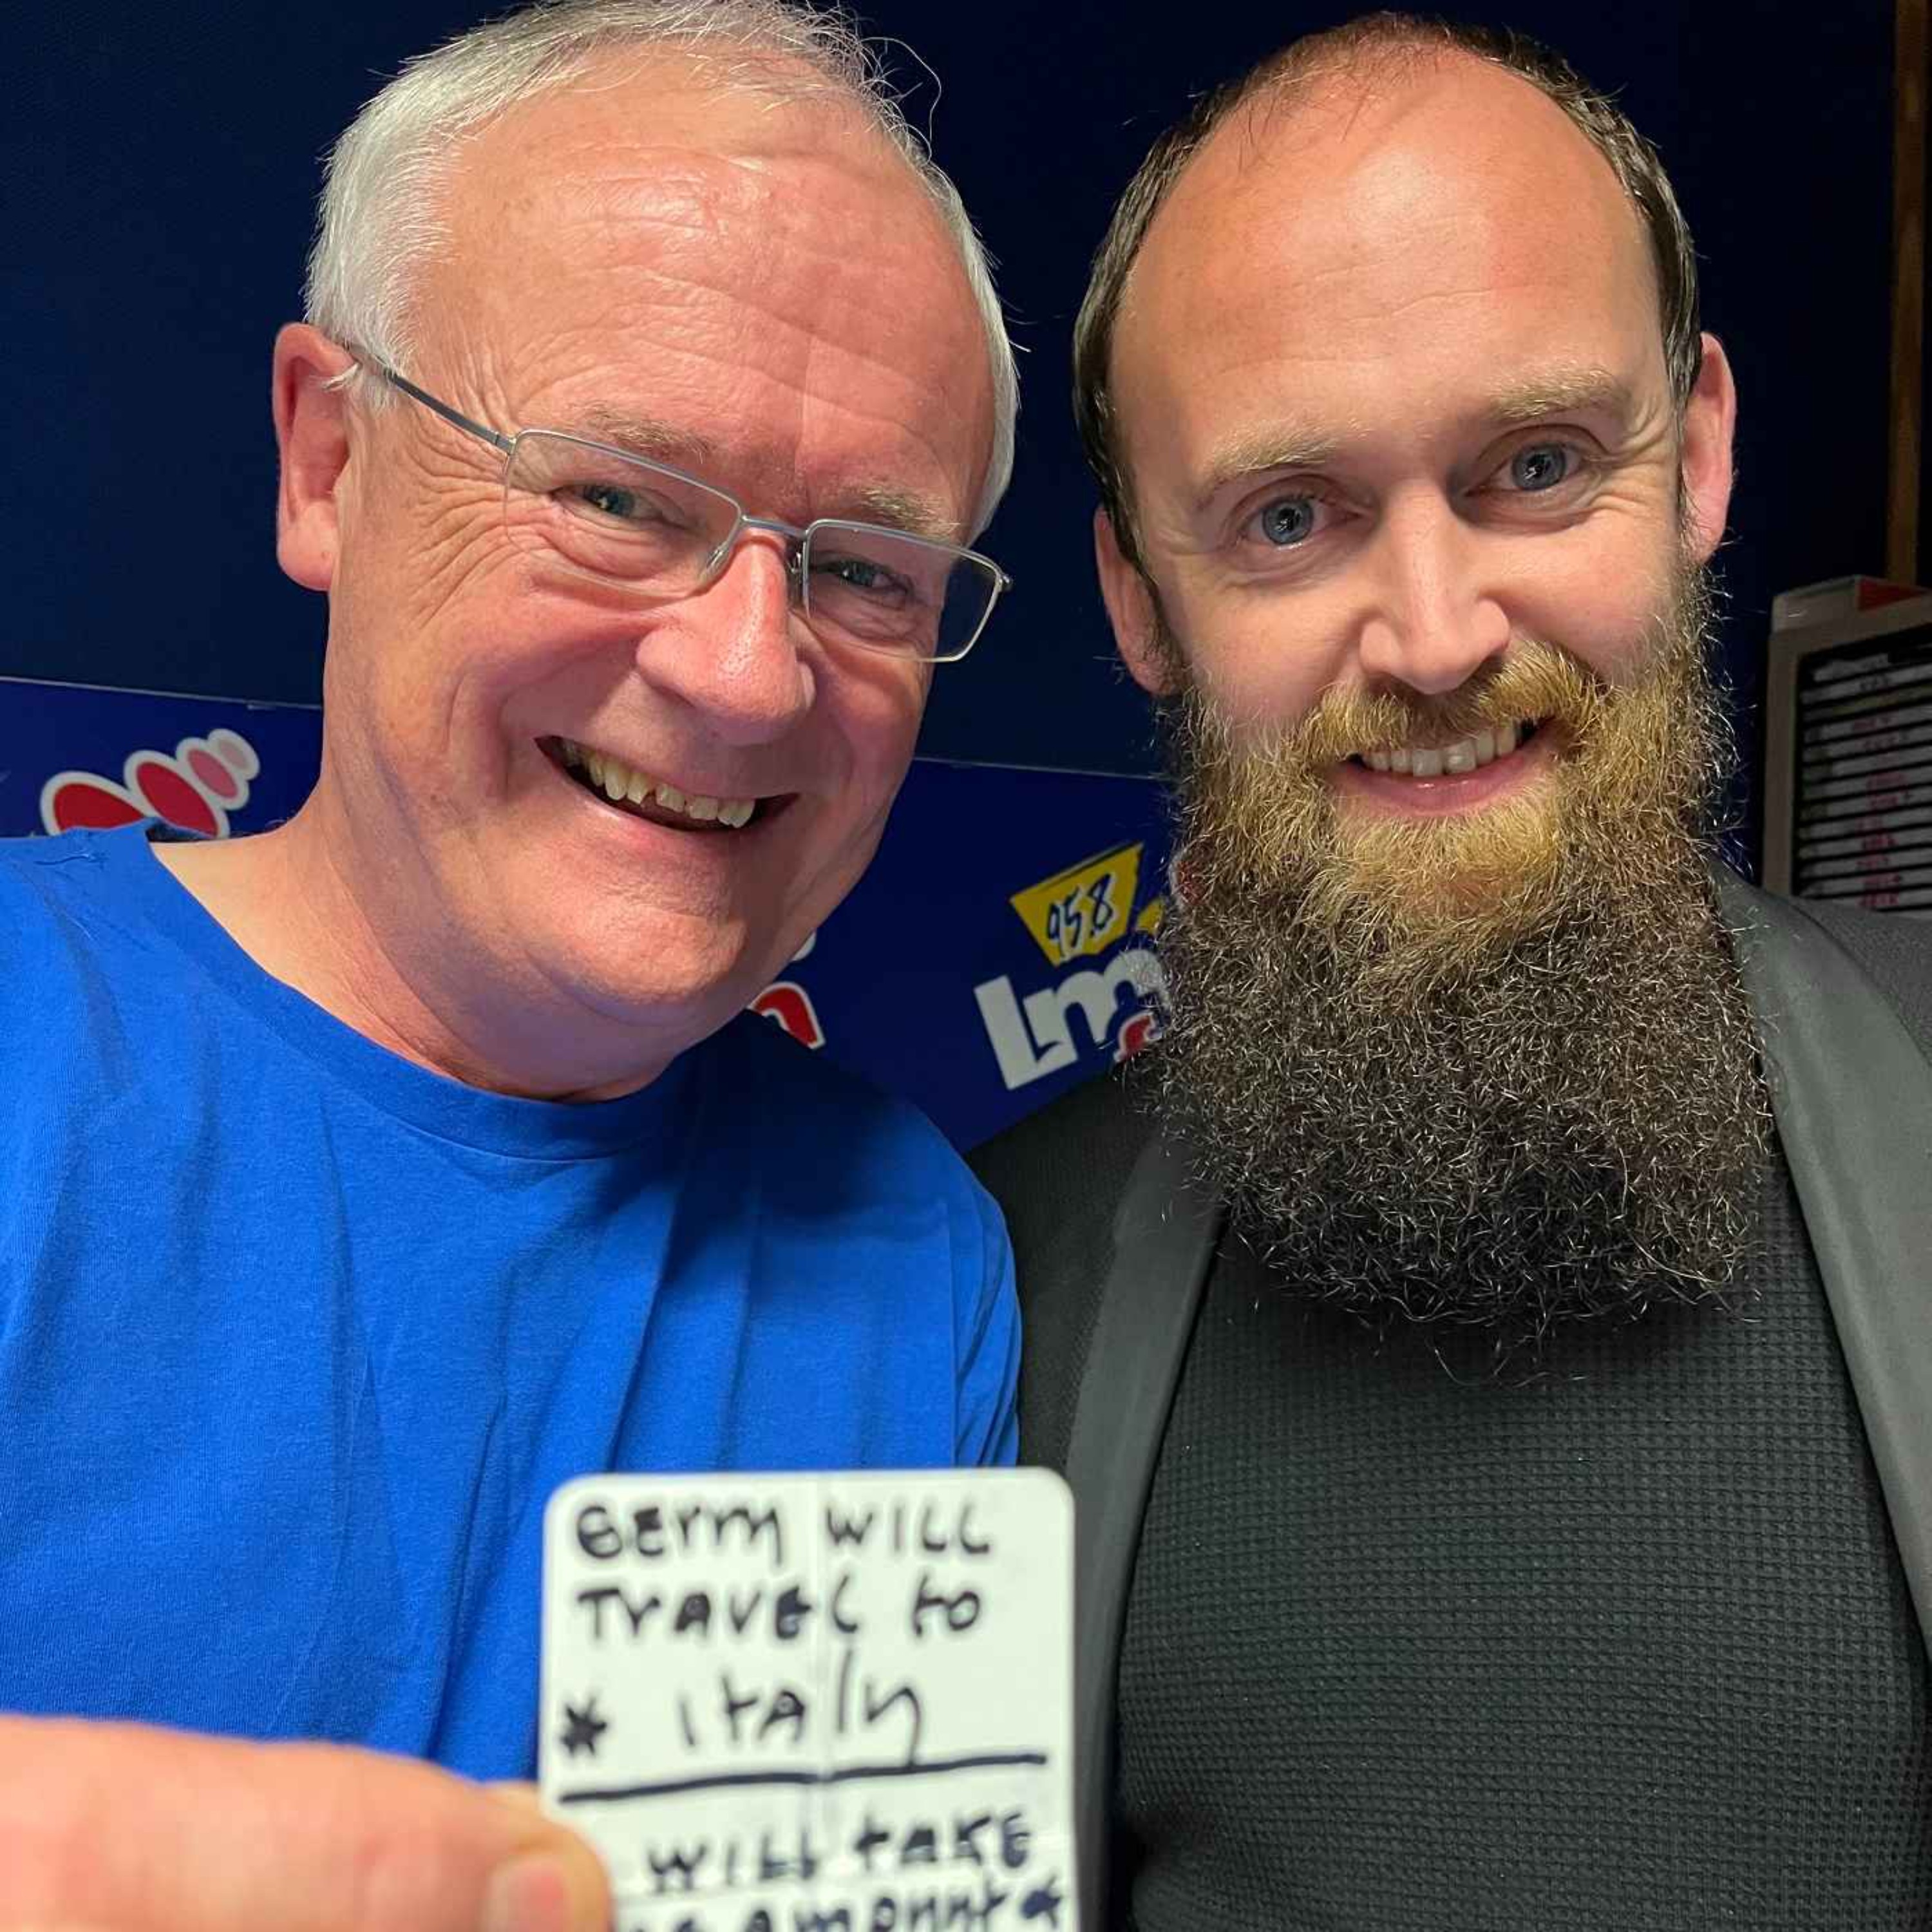 95.8
Lm
GErry WILL
TrAVEL to
* ItAly
WILL tAKE
AmOunt